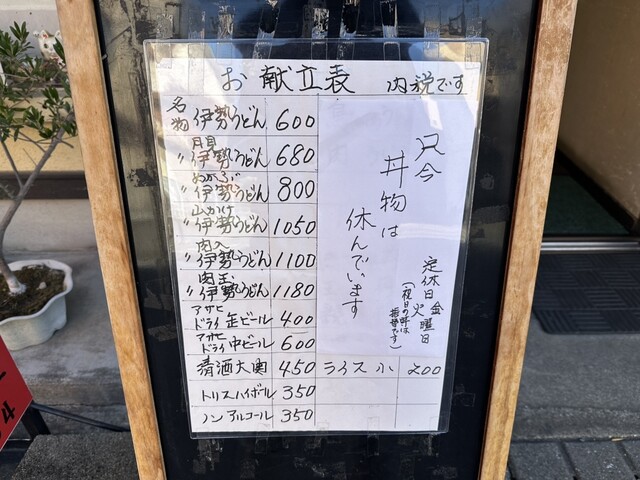 お献立表 内税です
名物 伊勢うどん 600
〃 月見 伊勢うどん 680
〃 わかめ 伊勢うどん 800
〃 山かけ 伊勢うどん 1050
〃 肉入 伊勢うどん 1100
〃 肉玉 伊勢うどん 1180
アサヒドライ 缶ビール 400
アサヒドライ 中ビール 600
清酒大奥 450
トリスハイボール 350
ノンアルコール 350
只今
丼物は
休んでいます
定休日 金 火 曜日
(祝日の時は振替です)
ライス 小 200
4